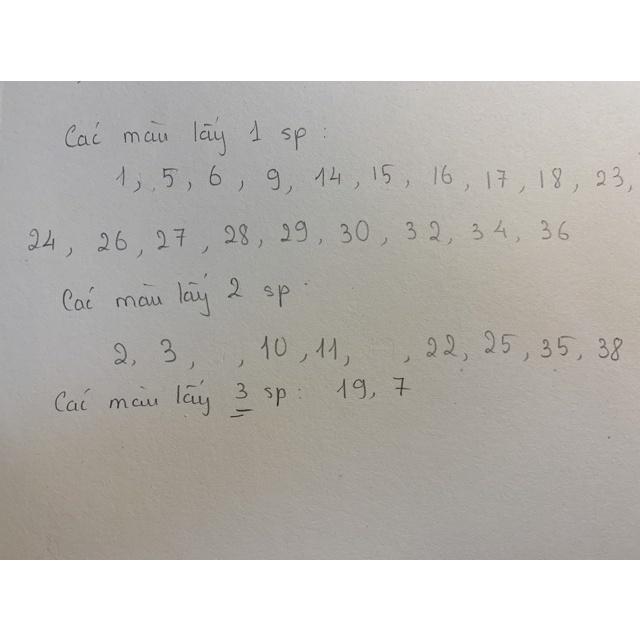 Các màu lấy 1 sp :
1, 5, 6, 9, 14, 15, 16, 17, 18, 23,
24, 26, 27, 28, 29, 30, 32, 34, 36
Các màu lấy 2 sp :
2, 3, , 10, 11, , 22, 25, 35, 38
Các màu lấy 3 sp : 19, 7